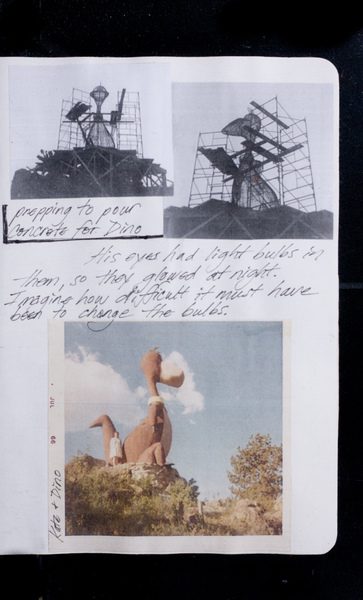 prepping to pour
Concrete for Dino
His eyes had light bulbs in
them, so they glowed at night.
Imagine how difficult it must have
been to change the bulbs.
JUL 66
Kate + Dino